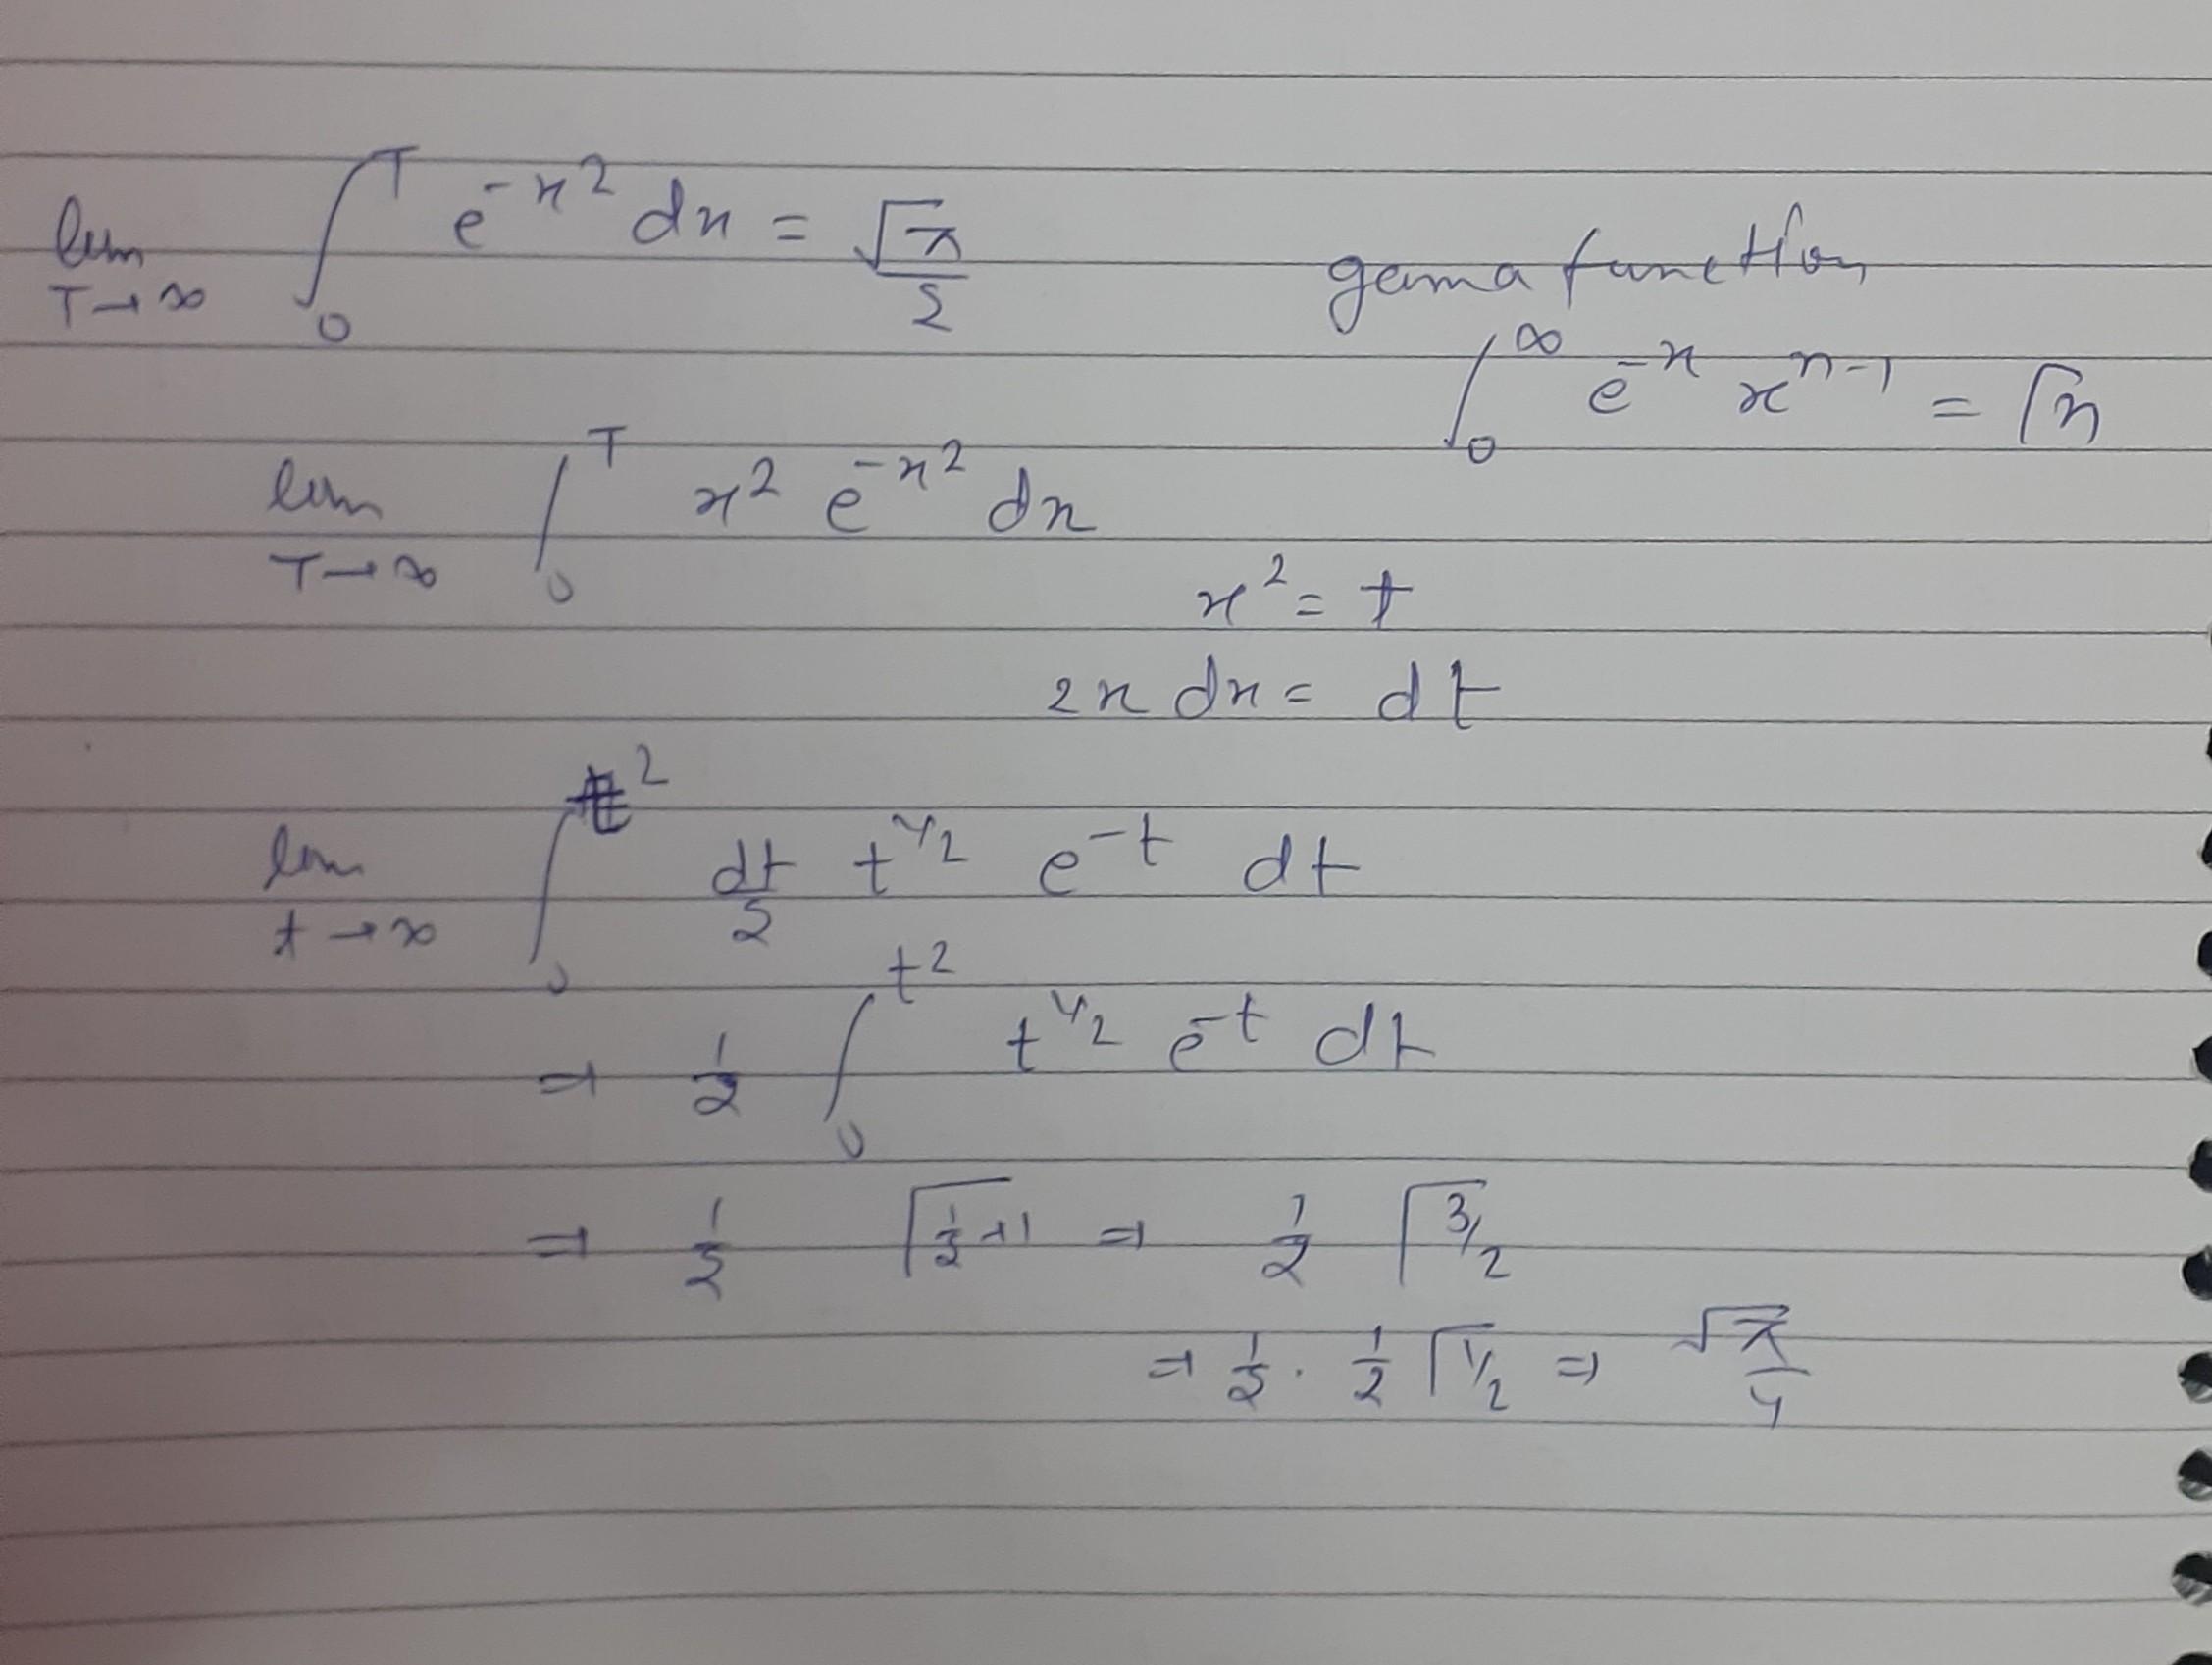 lim T→∞ ∫₀ᵀ e^{-x²} dx = √π/2
gama function
∫₀^∞ e^{-x} x^{n-1} = Γn
lim T→∞ ∫₀ᵀ x² e^{-x²} dx
x² = t
2x dx = dt
lim t→∞ ∫₀^{t²} dt/2 t^{1/2} e^{-t} dt
⇒ 1/2 ∫₀^{t²} t^{1/2} e^{-t} dt
⇒ 1/2 Γ(1/2+1) ⇒ 1/2 Γ(3/2)
⇒ 1/2 · 1/2 Γ(1/2) ⇒ √π/4